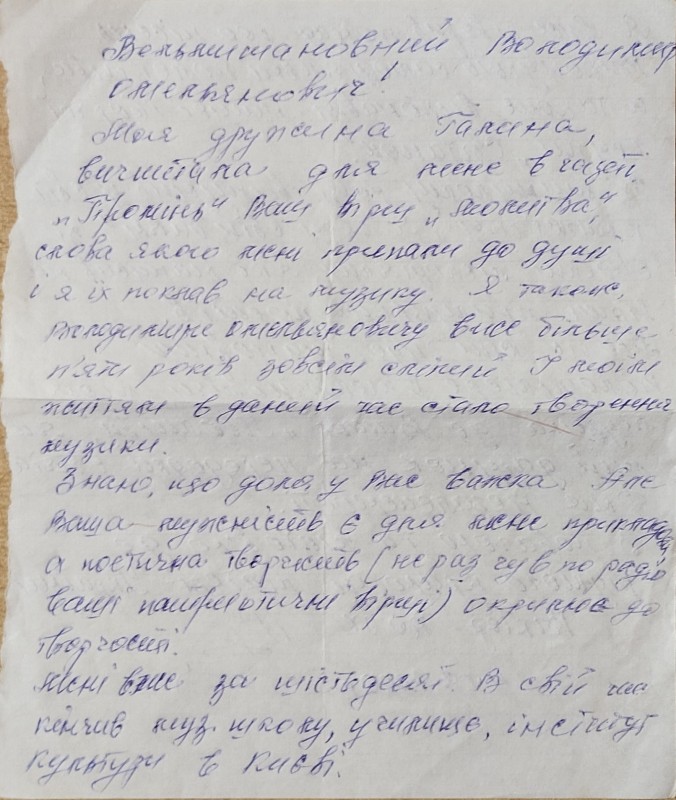 Вельмишановний Володимир
Омелянович!
Моя дружина Галина,
вичитала для мене в газеті
„Промінь“ Ваш вірш „Молитва“,
слова якого мені припали до душі
і я їх поклав на музику. Я також,
Володимире Омеляновичу вже більше
п'яти років зовсім сліпий І моїм
життям в даний час стало творення
музики.
Знаю, що доля у Вас важка. Але
Ваша мужність є для мене прикладом
а поетична творчість (не раз чув по радіо
ваші патріотичні вірші) окрилює до
творчості.
Мені вже за шістьдесят. В свій час
кінчив муз школу, училище, інститут
культури в Києві.